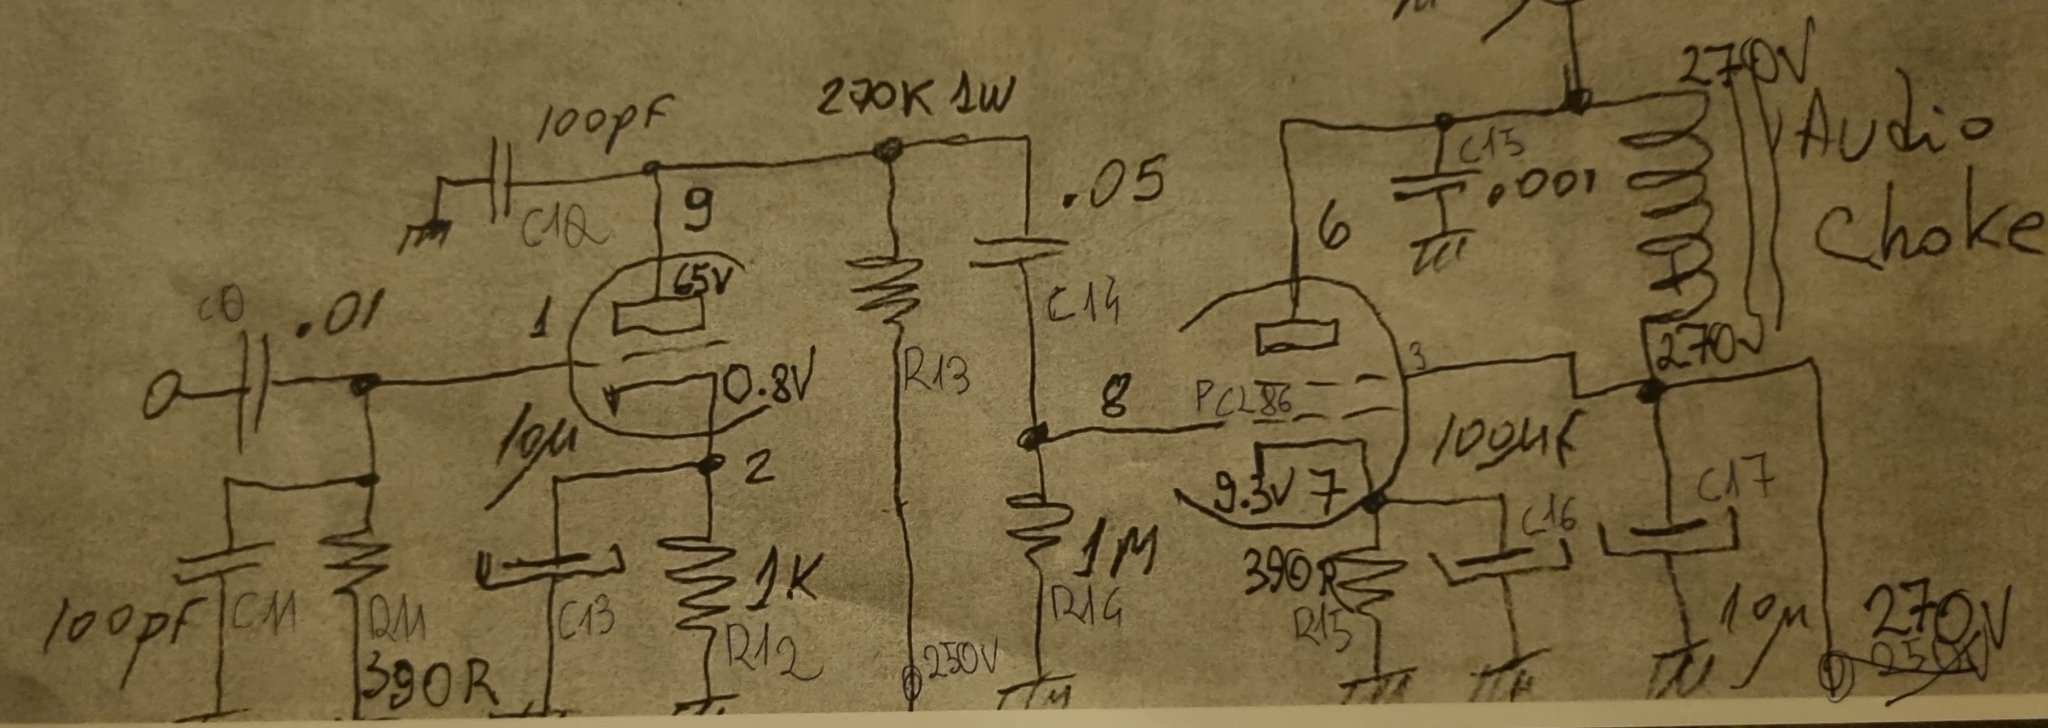 270V
Audio
choke
100pF
270K 1W
C12
9
65V
.05
C14
6
C15
.001
.01
1
0.8V
R13
8
PCL86
3
270V
10µ
2
9.3V 7
100µF
C16
C17
100pF
C11
R11
390R
C13
1K
R12
250V
1M
R14
390R
R15
10µ
270V
250V